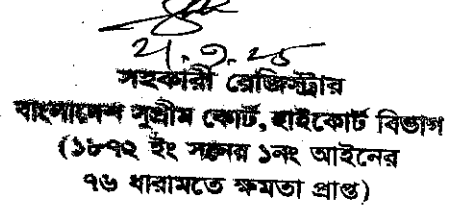 সহকারী রেজিস্ট্রার
বাংলাদেশ সুপ্রীম কোর্ট, হাইকোর্ট বিভাগ
(১৮৭২ ইং সনের ১নং আইনের
৭৬ ধারামতে ক্ষমতা প্রাপ্ত)